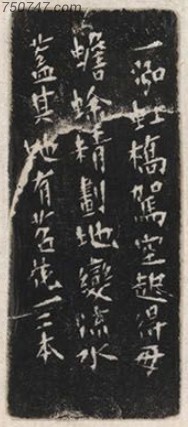 750747.com
一泓虹橋駕空起得毋
蟾蜍精劃地變流水
蓋其地有茗一二本